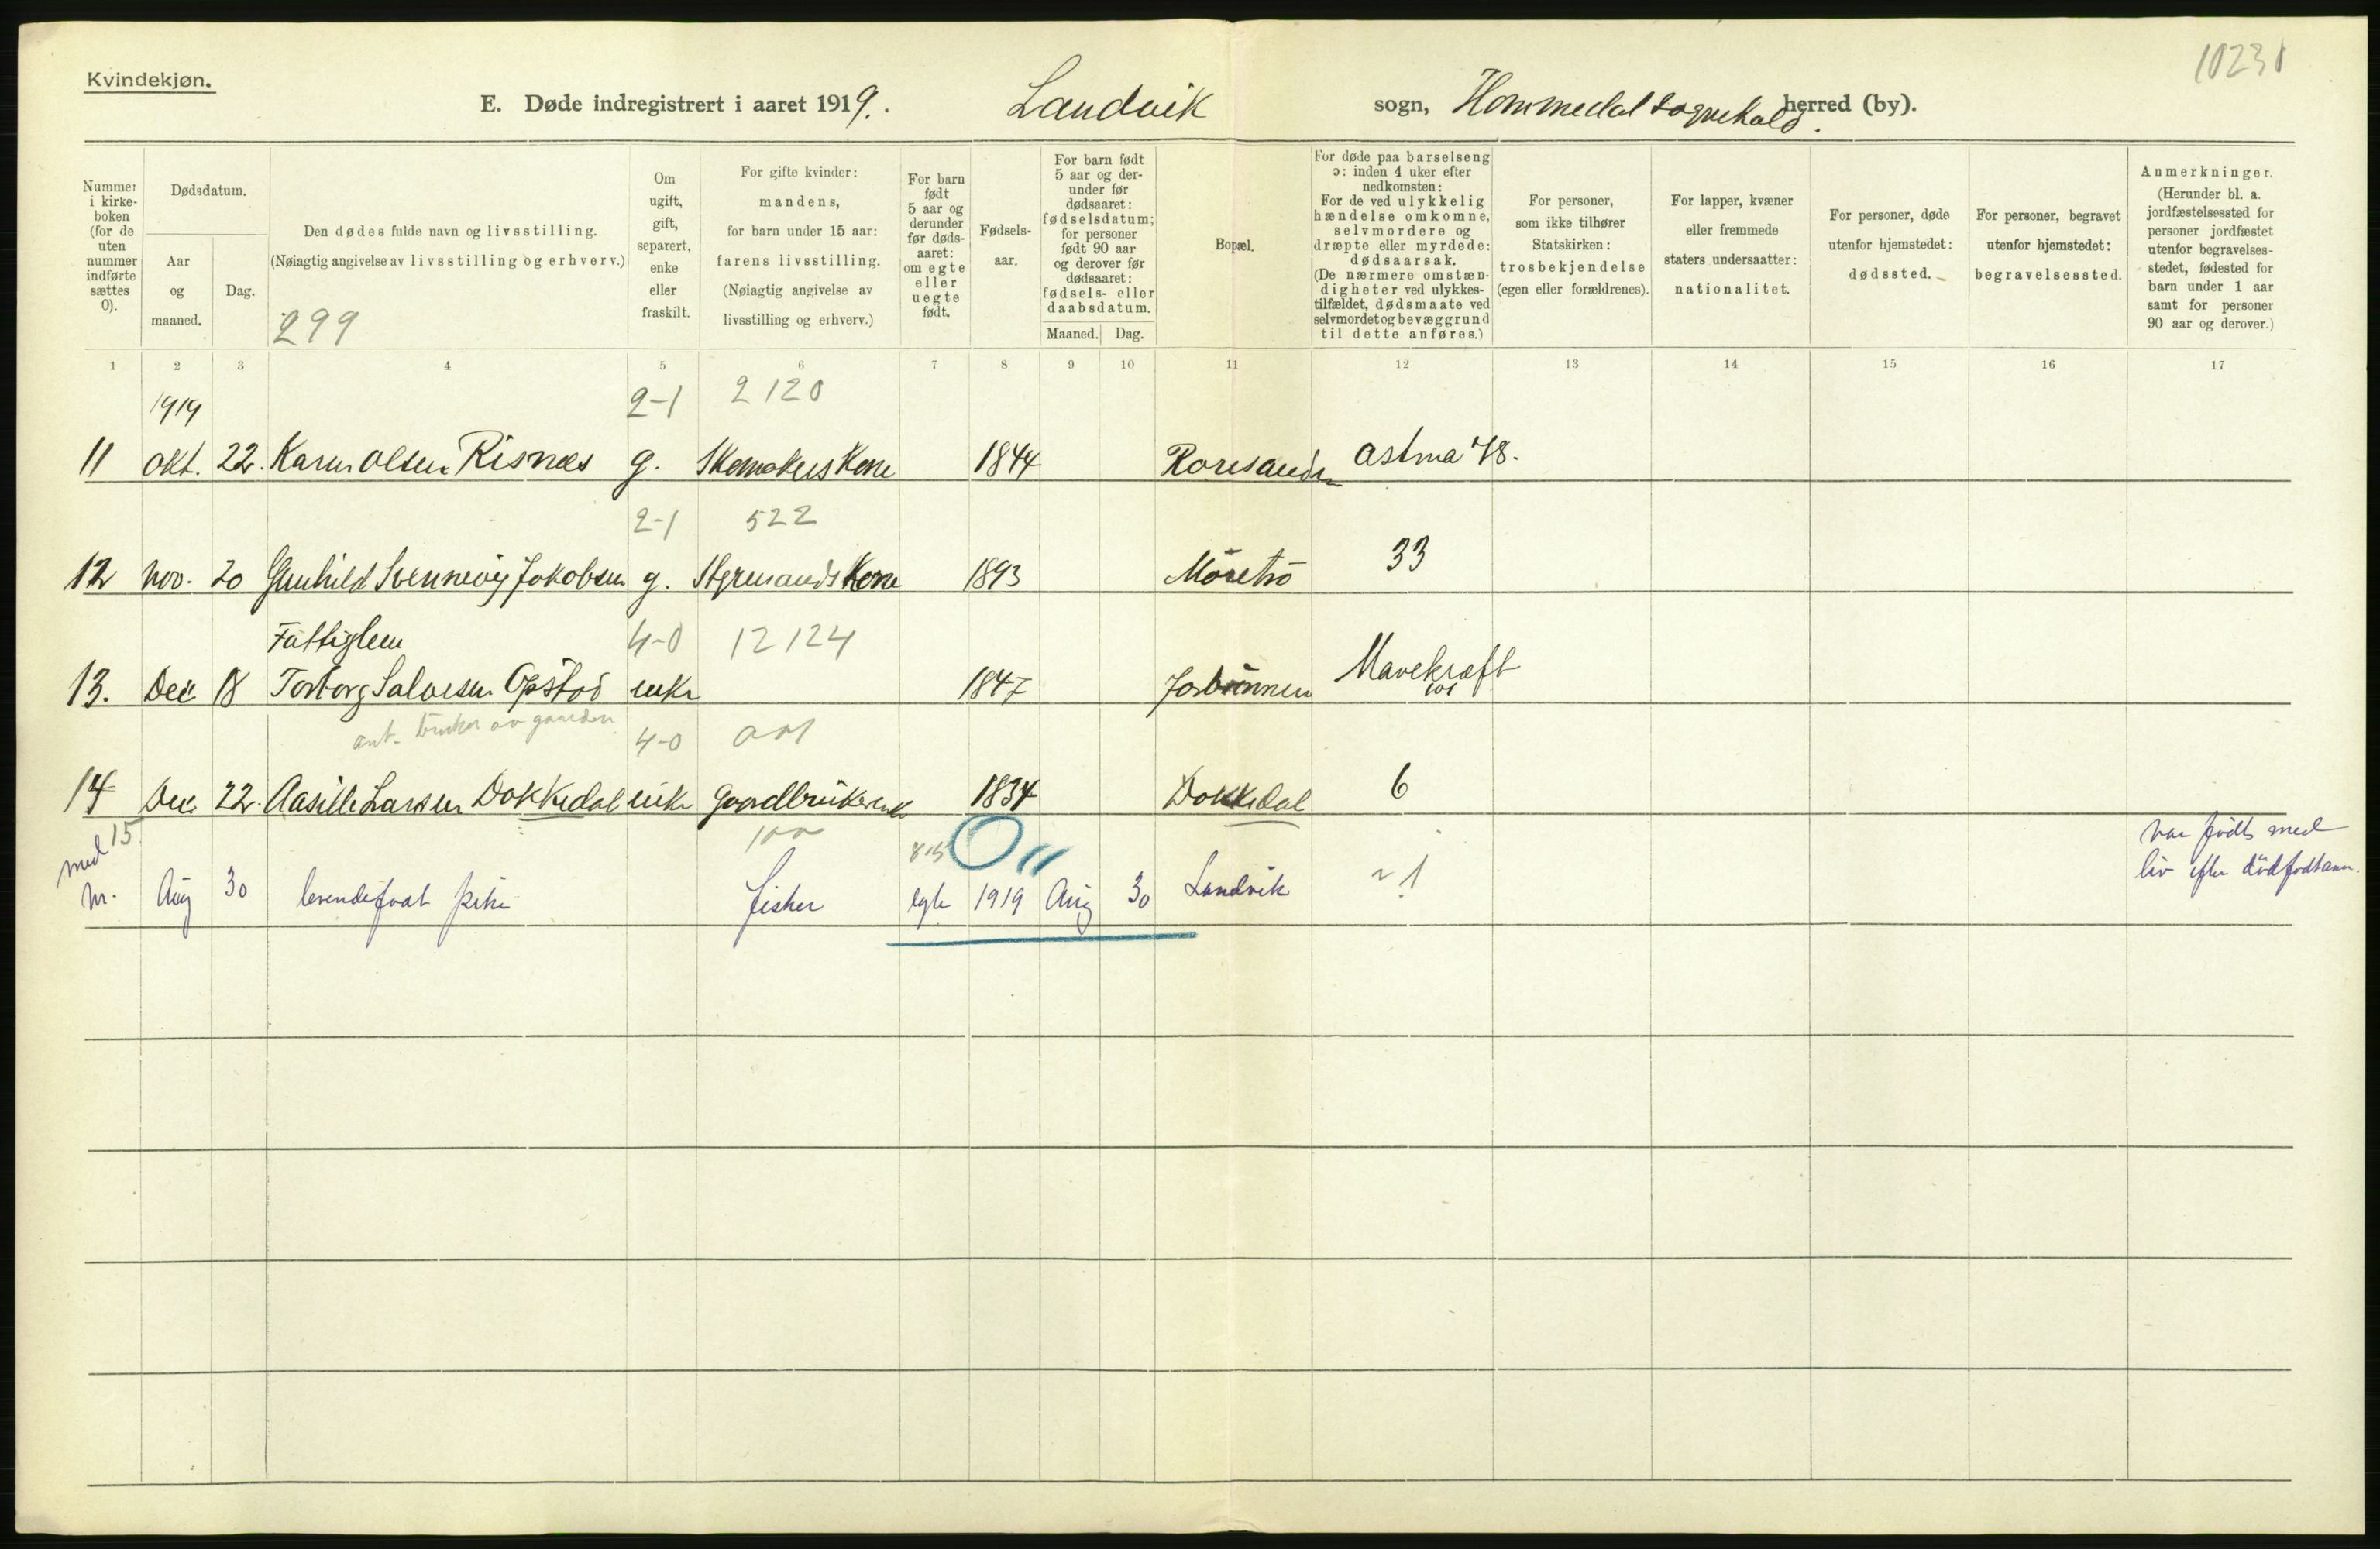 Kvindekjøn.
10231
E. Døde indregistrert i aaret 1919. Landvik sogn, Hommedal sognekald. herred (by).
Nummer i kirke-boken (for de uten nummer indførte sættes 0).
Dødsdatum.
Aar og maaned.
Dag.
Den dødes fulde navn og livsstilling.
(Nøiagtig angivelse av livsstilling og erhverv.)
299
Om ugift, gift, separert, enke eller fraskilt.
For gifte kvinder: mandens, for barn under 15 aar: farens livsstilling. (Nøiagtig angivelse av livsstilling og erhverv.)
For barn født 5 aar og derunder før døds-aaret: om egte eller uegte født.
Fødsels-aar.
For barn født 5 aar og der-under før dødsaaret: fødselsdatum; for personer født 90 aar og derover før dødsaaret: fødsels- eller daabsdatum.
Maaned. Dag.
Bopæl.
For døde paa barselseng ɔ: inden 4 uker efter nedkomsten: For de ved ulykkelig hændelse omkomne, selvmordere og dræpte eller myrdede: dødsaarsak. (De nærmere omstæn-digheter ved ulykkes-tilfældet, dødsmaate ved selvmordet og bevæggrund til dette anføres.)
For personer, som ikke tilhører Statskirken: trosbekjendelse (egen eller forældrenes).
For lapper, kvæner eller fremmede staters undersaatter: nationalitet.
For personer, døde utenfor hjemstedet: dødssted.
For personer, begravet utenfor hjemstedet: begravelsessted.
Anmerkninger. (Herunder bl. a. jordfæstelsessted for personer jordfæstet utenfor begravelses-stedet, fødested for barn under 1 aar samt for personer 90 aar og derover.)
1 2 3 4 5 6 7 8 9 10 11 12 13 14 15 16 17
1919 2-1 2120
11 Okt. 22. Karen Olsen Risnæs g. Skomakers Kone 1844 Roresanden Astma 48.
2-1 522
12 Nov. 20 Gunhild Svennevig Jakobsen g. Styrmands Kone 1893 Moretrö 33
Fattiglem 4-0 12124
13. Dec 18 Torborg Salvesen Opstad enke 1847 Josbönnen Mavekræft
101
ant. bruker av gaarden 4-0
14 Dec. 22. Aasille Larsen Dokkedal enke Gaardbrukerenk 1834 Dokkedal 6
med 15 var födt med
nr. Aug 30 levendefødt pike fisker egte 1919 Aug 30 Landvik 1 liv efter dödfödtanm.